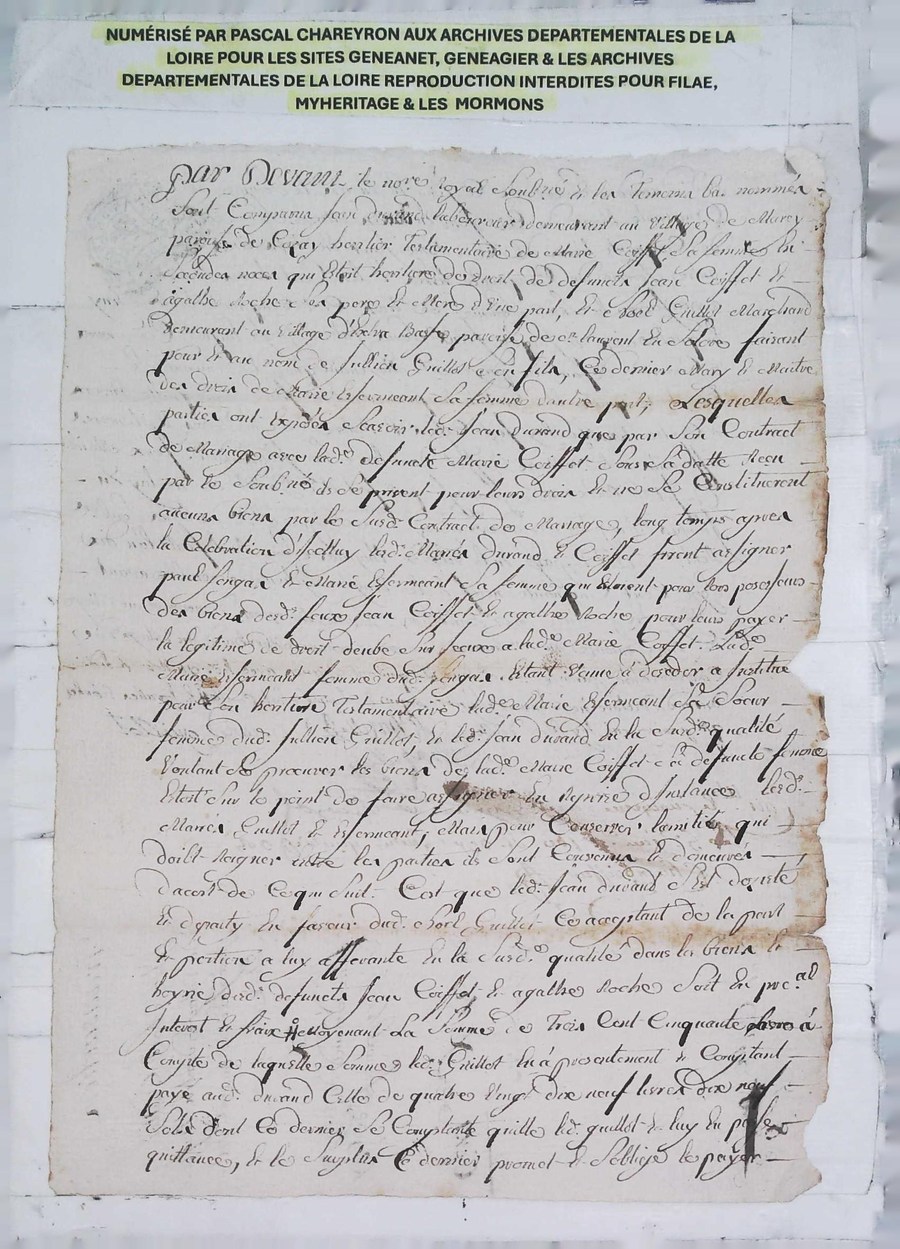 NUMÉRISÉ PAR PASCAL CHAREYRON AUX ARCHIVES DEPARTEMENTALES DE LA
LOIRE POUR LES SITES GENEANET, GENEAGIER & LES ARCHIVES
DEPARTEMENTALES DE LA LOIRE REPRODUCTION INTERDITES POUR FILAE,
MYHERITAGE & LES MORMONS
par Devant le nore Royal Soubné et les Temoins bas nommés
Sont Comparus Jean durand laboureur demeurant au Village de Marey
paroisse de heritier Testamentaire de Marie Coiffet Sa femme en
Secondes noces qui Etoit heritiere de droit de defuncts Jean Coiffet et
agathe Roche Ses pere et Mere d'Une part, et Noel Guillot Marchand
demeurant au Village paroisse de st laurent En Solore faisant
pour et au nom de Jullien Guillot Son fils, Ce dernier Mary et Maitre
des droits de Marie Esfermeant Sa femme dautre part, Lesquelles
parties ont Exposés Scavoir led. Jean durand que par Son Contract
de Mariage avec lade defuncte Marie Coiffet Sous Sa datte Recu
par le Soubné ils Se prirent pour leurs droits et ne Se Constituerent
aucuns biens par le Susd. Contract de Mariage, long temps apres
la Celebration d'Jcelluy lesd. Mariés Durand et Coiffet firent assigner
paul Songas et Marie Esfermeant Sa femme qui Etoient pour lors possesseurs
des biens desd. feux Jean Coiffet et agathe Roche pour leurs payer
la legitime de droit deube Sur Jceux a lade Marie Coiffet. Lade
Marie Esfermeant femme dud. Songas Etant Venue à deceder a Institué
pour Son heritiere Testamentaire lade Marie Esfermeant Sa Soeur
femme dud. Jullien Guillot, et led. Jean durand En la Susde qualité
Voulant Se procurer les biens de lade Marie Coiffet Sa defuncte femme
Etoit Sur le point de faire assigner En Reprise d'Instance lesd.
Mariés Guillot et Esfermeant, Mais pour Conserver lamitié qui
doibt Reigner entre les parties ils Sont Convenus et demeurés
dacort de Ce qui Suit. C'est que led. Jean durand S'est desisté
et departy En faveur dud. Noel Guillot Ce acceptant de la part
et portion a luy afferante En la Susde qualité dans les biens et
hoyrie desd. defuncts Jean Coiffet et agathe Roche Soit En procal
Interest et fraix Moyenant La Somme de Trois Cent Cinquante Livres à
Compte de laquelle Somme led. Guillot En à presentement et Comptant
payé aud. durand Celle de quatre Vingt dix neuf livres dix neuf
Sols dont Ce dernier Se Contente quitte led. guillot et luy En passe
quittance, et le Surplus Ce dernier promet et S'oblige le payer